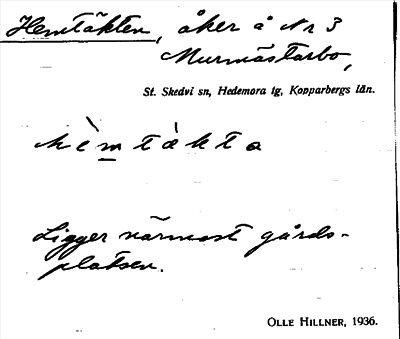 Hemtäkten, åker å Nr 3
Murmästarbo,
St. Skedvi sn, Hedemora tg, Kopparbergs län.
hèm tàkta
Ligger närmast gårds-
platsen.
OLLE HILLNER, 1936.